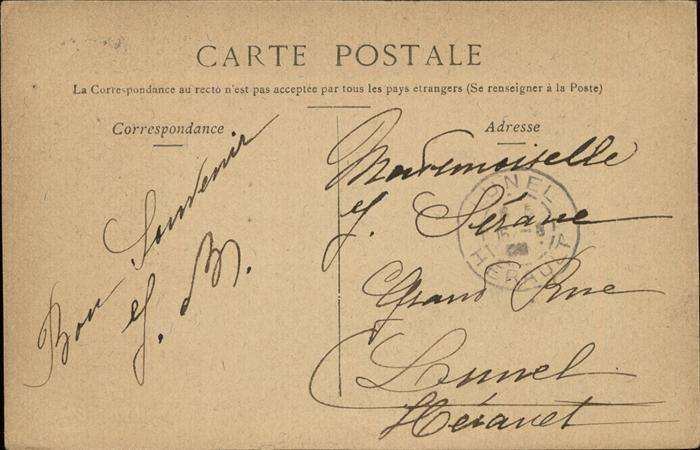 CARTE POSTALE
La Correspondance au recto n'est pas acceptée par tous les pays étrangers (Se renseigner à la Poste)
Correspondance
Bon Souvenir
J. M.
Adresse
Mademoiselle
J. Sérane
Grand Rue
Lunel
Hérault
LUNEL
HERAULT